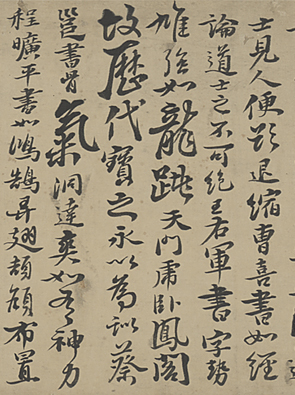 士見人便欲退縮曹喜書如經
論道士之不可絕王右軍書字勢
雄強如龍跳天門虎卧鳳閣
故歷代寶之永以為訓蔡
邕書骨氣洞達爽如有神力
程曠平書如鴻鵠弄翅頡頏布置